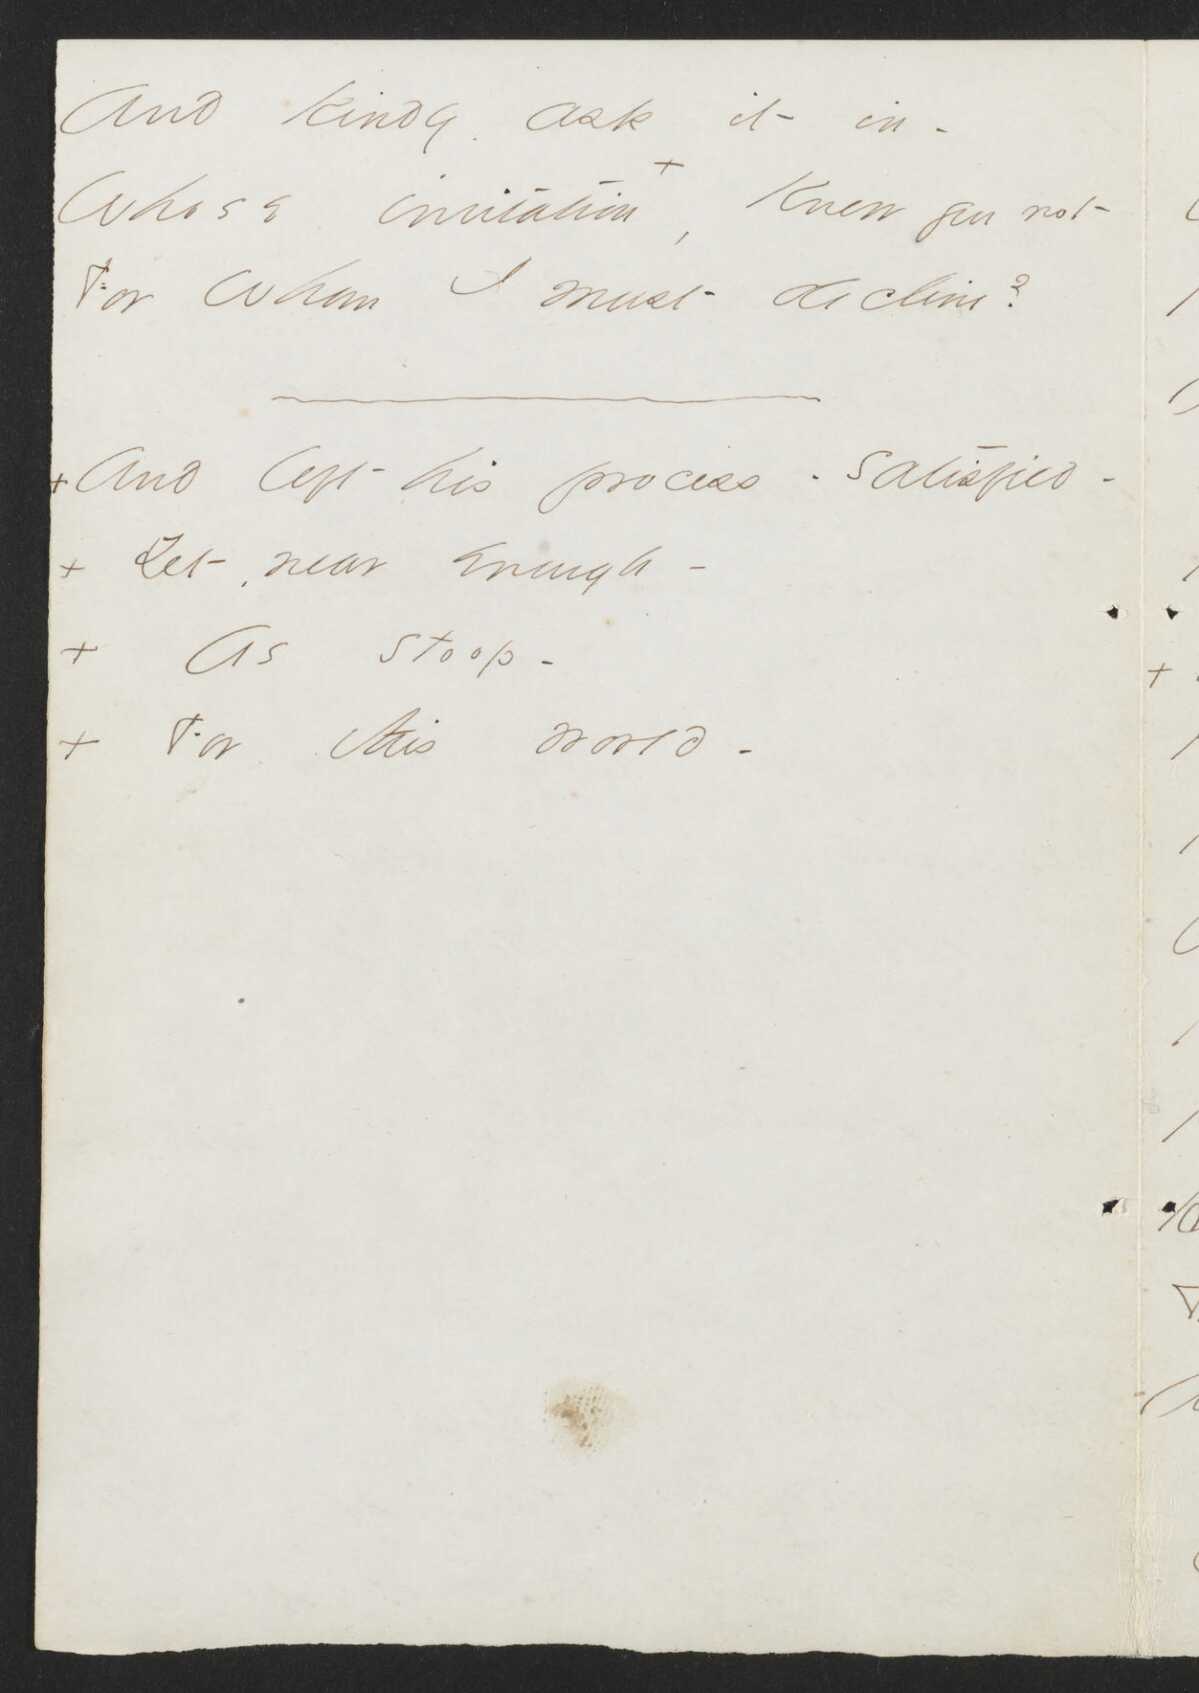 And kindly ask it in -
Whose invitation +, Knew you not -
For Whom I must decline?
+ And left his process - satisfied -
+ Yet, near enough -
+ As stoop -
+ For this world -
+